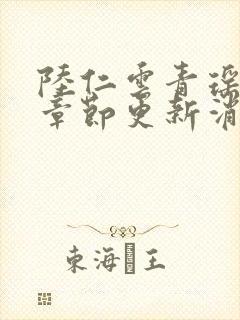 陸仁雲青瑶
章節更新消
東海王